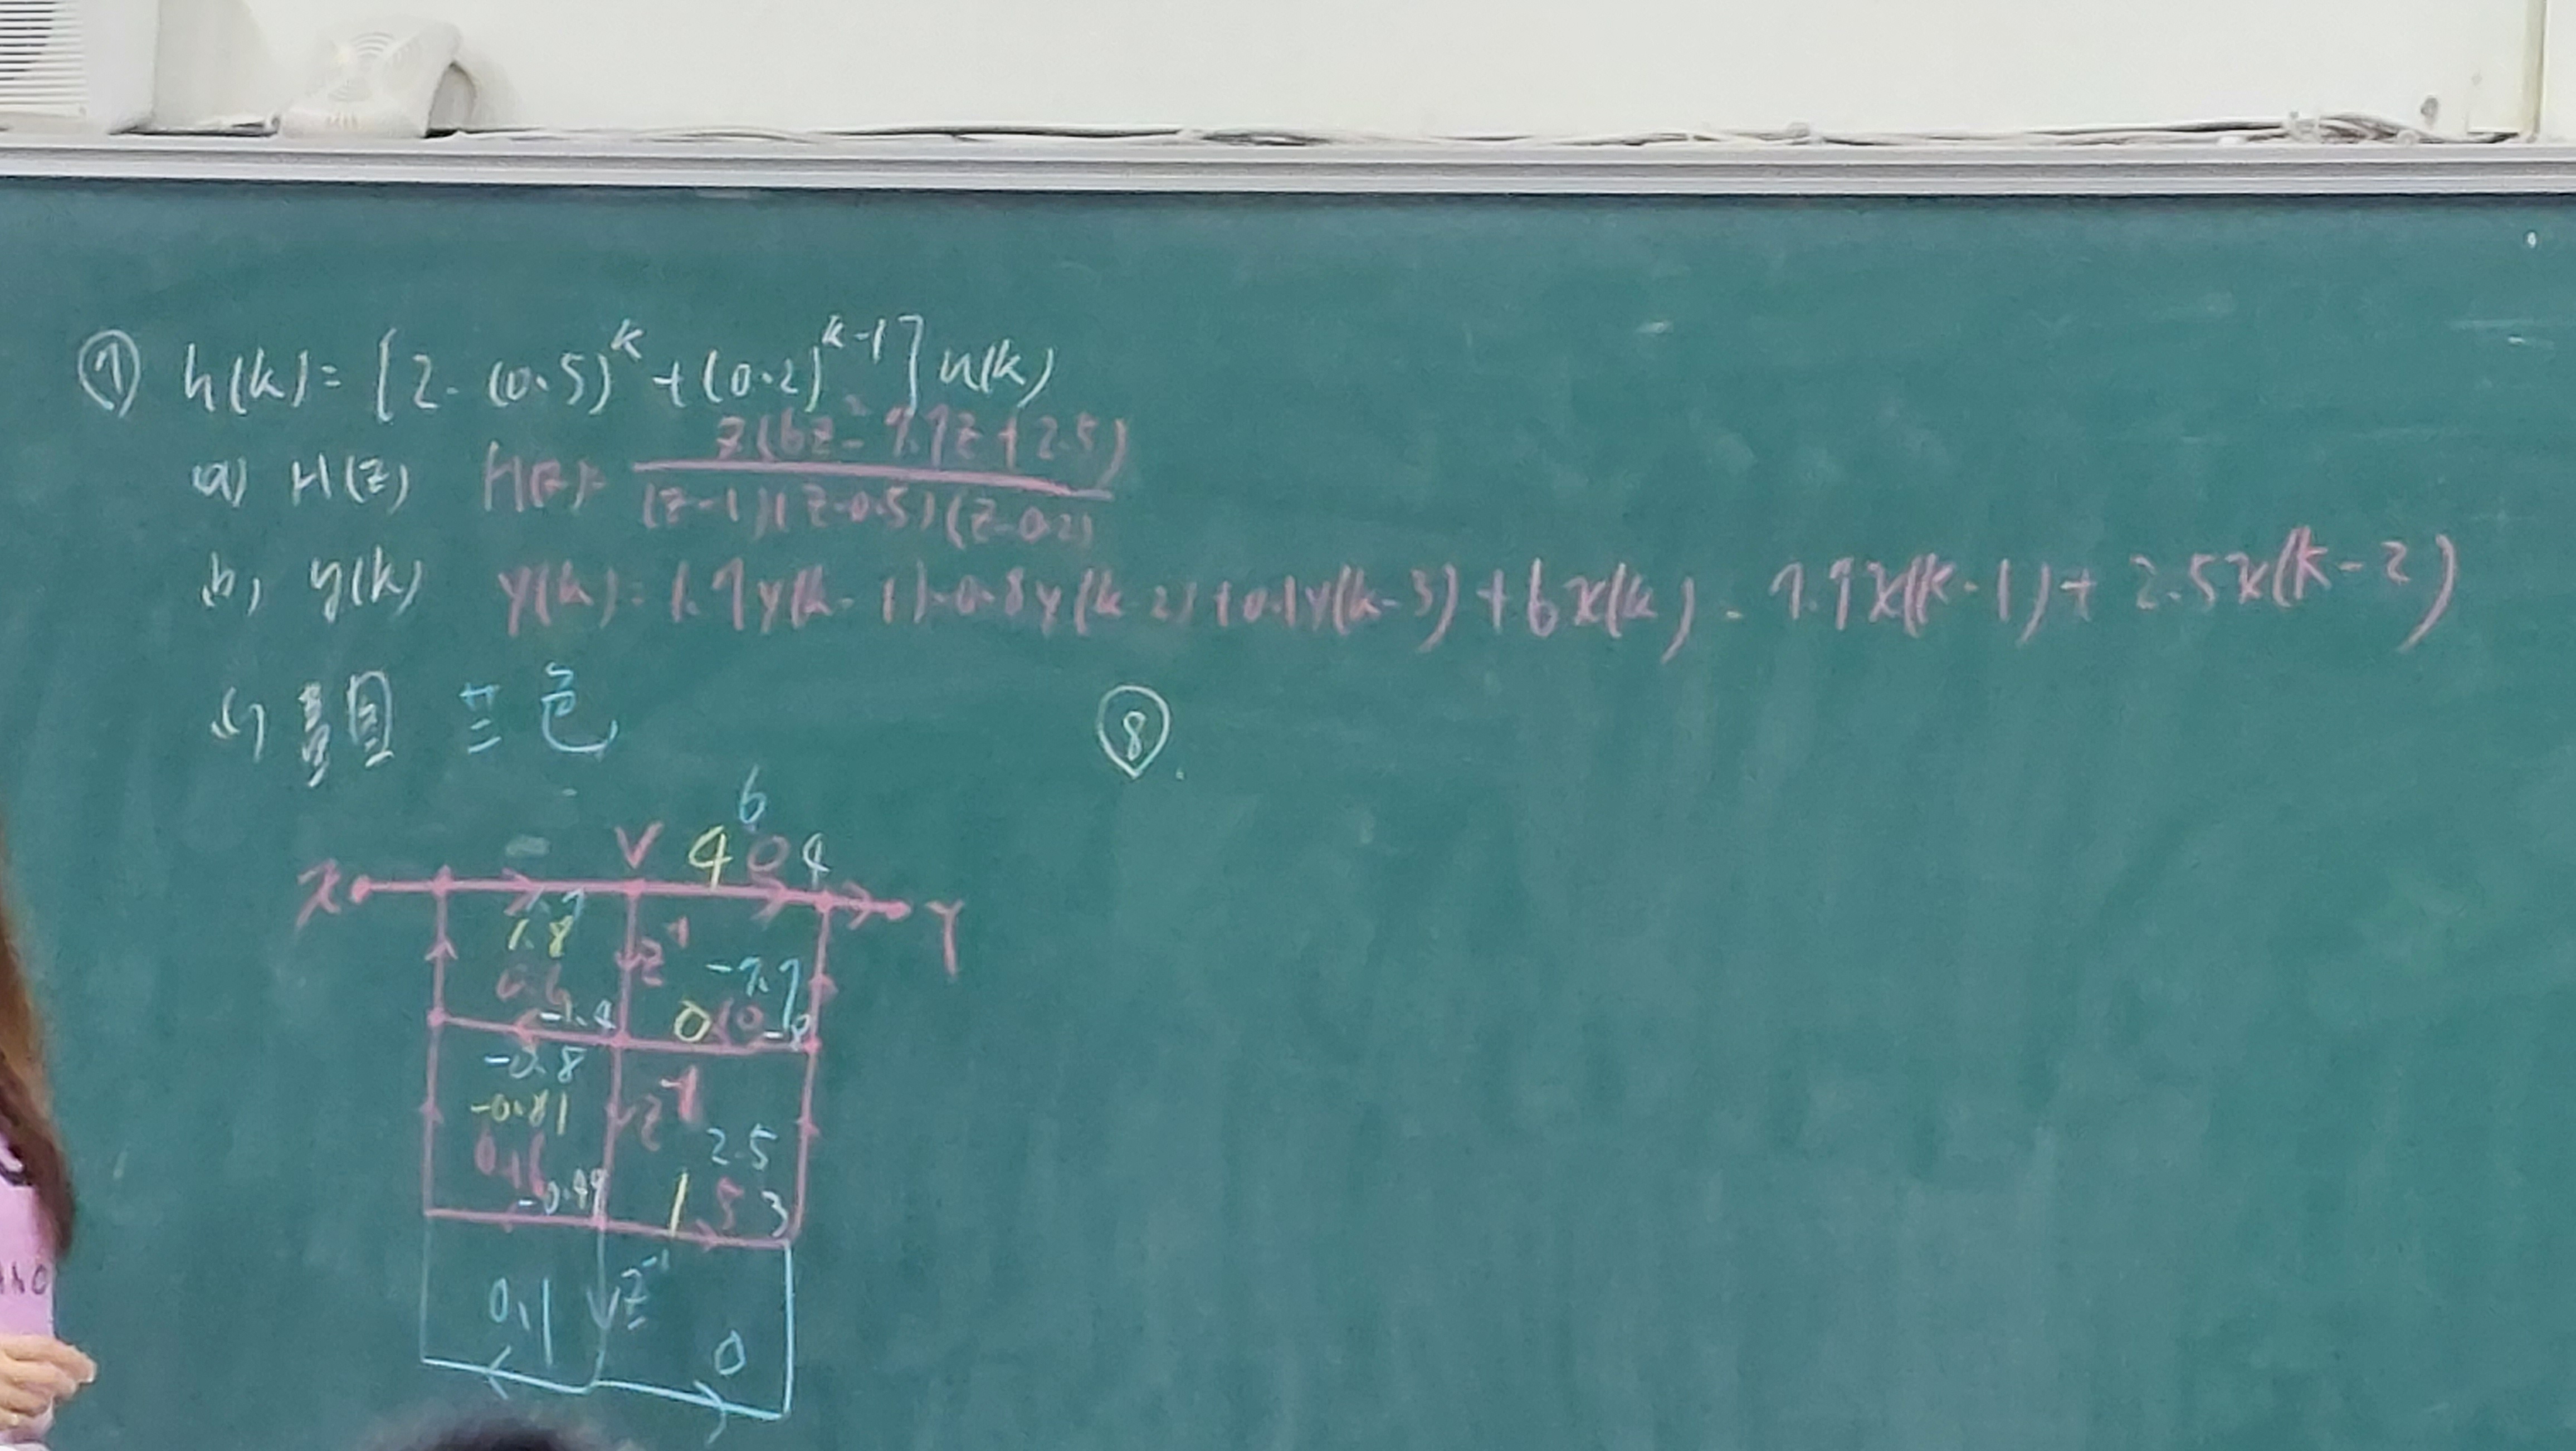 ⑦ h(k) = [2 - (0.5)^k + (0.2)^{k-1}] u(k)
a) H(z) H(z) = z(6z² - 7.7z + 2.5) / (z-1)(z-0.5)(z-0.2)
b) y(k) y(k) = 1.7y(k-1) - 0.8y(k-2) + 0.1y(k-3) + 6x(k) - 7.7x(k-1) + 2.5x(k-2)
c) 畫圖 芸色
⑧.
6
V 4 0 4
X Y
1.7
1.8 z⁻¹
-7.7
-1.4 0
-0.8
-0.81 z⁻¹
2.5
-0.49 1 5 3
0.1 z⁻¹
0